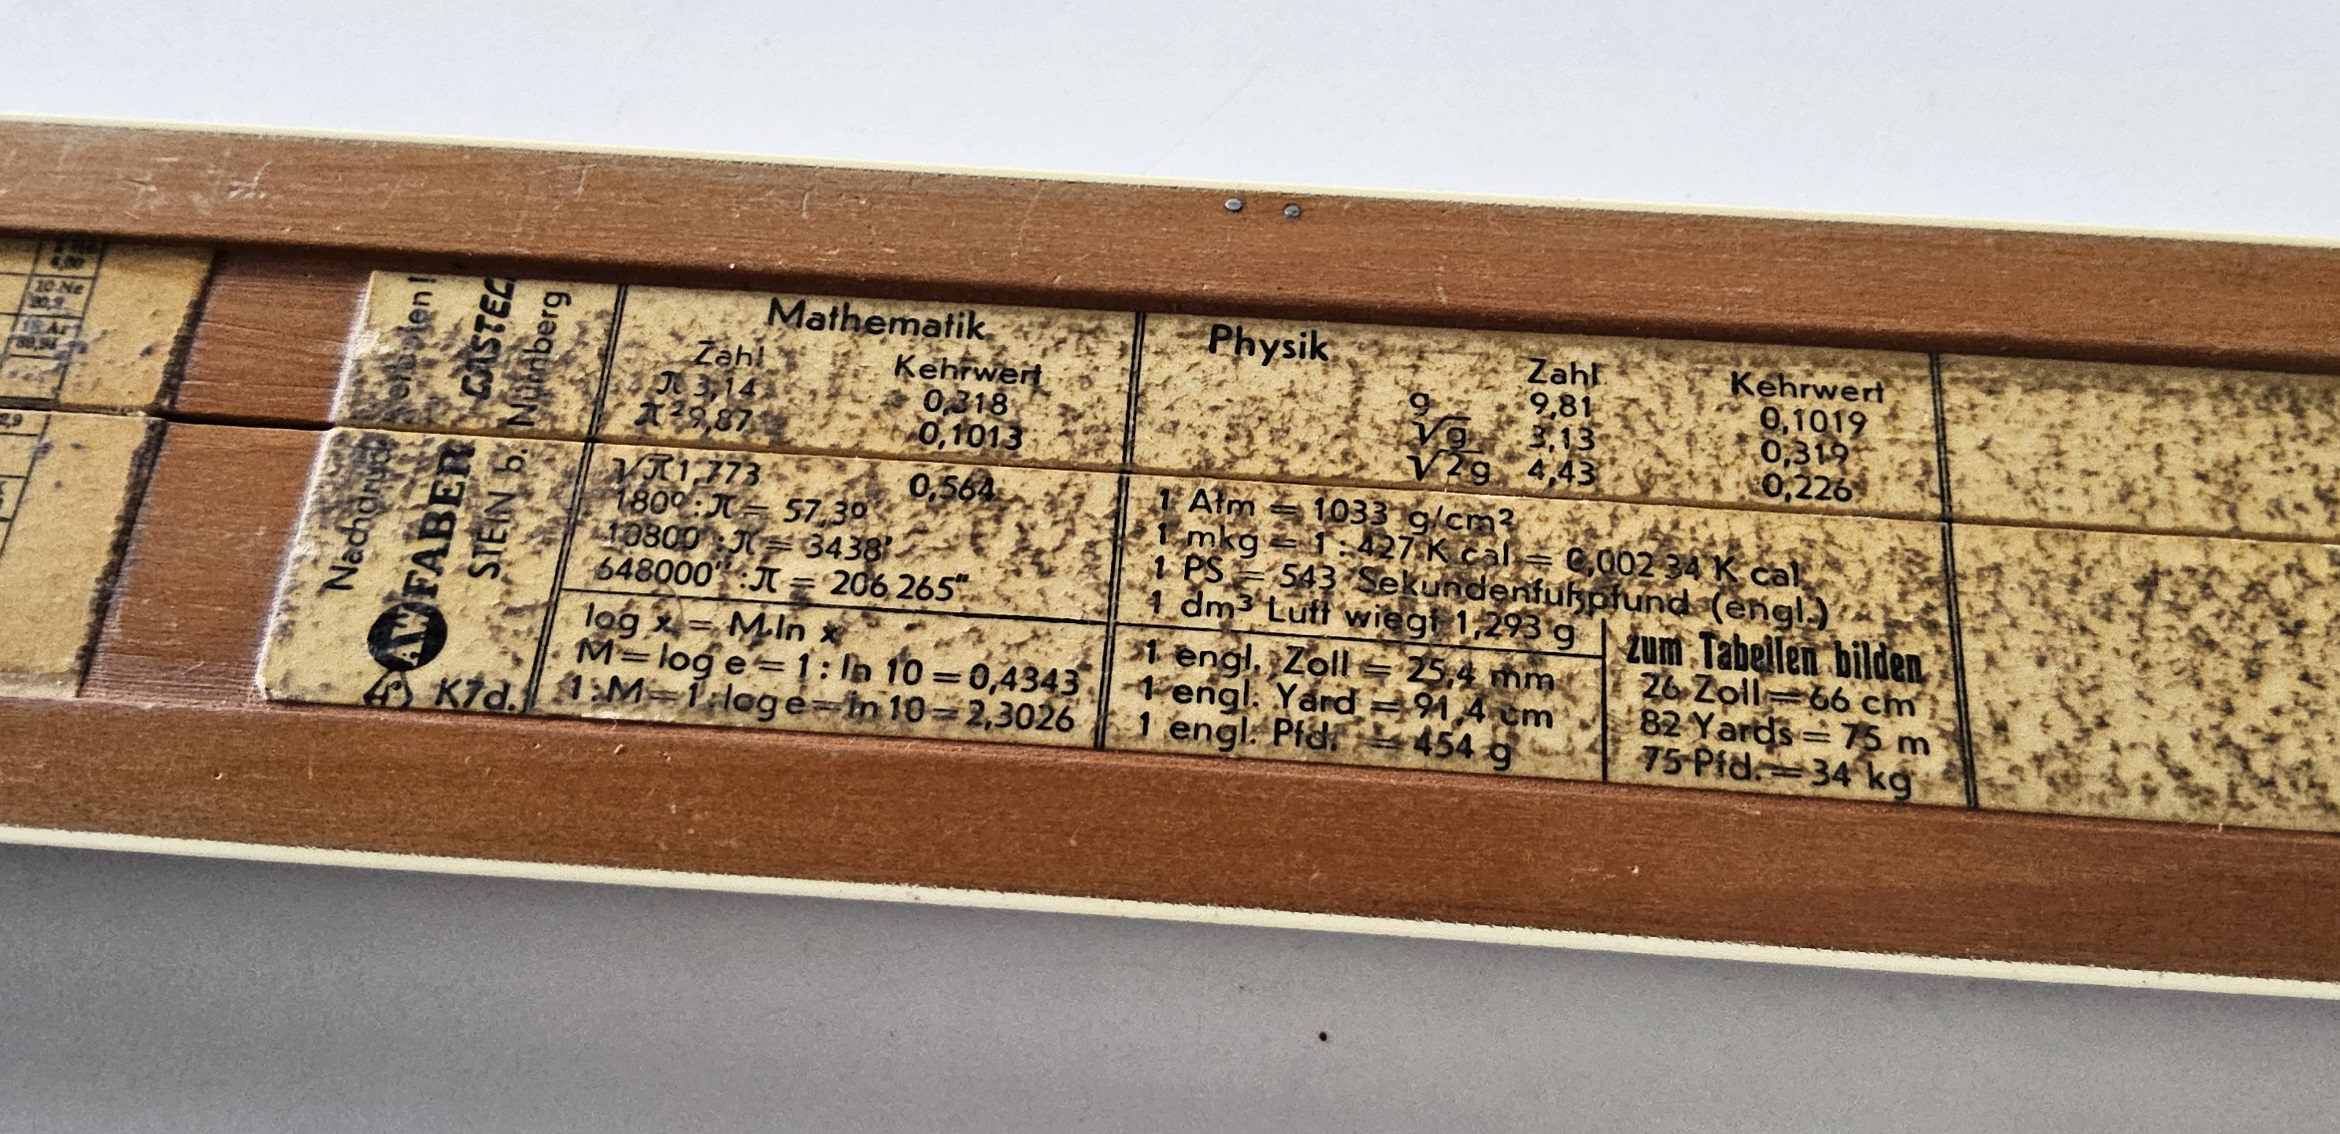 4,00
10 Ne
20,2
18 Ar
39,94
2,9
Nachdruck verboten!
A.W. FABER CASTELL
STEIN b. Nürnberg
K7d.
Mathematik
Zahl Kehrwert
π 3,14 0,318
π² 9,87 0,1013
√π 1,773 0,564
180°:π = 57,3°
10800':π = 3438'
648000":π = 206 265"
log x = M.ln x
M = log e = 1 : ln 10 = 0,4343
1:M = 1:log e = ln 10 = 2,3026
Physik
Zahl Kehrwert
g 9,81 0,1019
√g 3,13 0,319
√2g 4,43 0,226
1 Atm = 1033 g/cm²
1 mkg = 1 : 427 K cal = 0,002 34 K cal
1 PS = 543 Sekundenfußpfund (engl.)
1 dm³ Luft wiegt 1,293 g
1 engl. Zoll = 25,4 mm
1 engl. Yard = 91,4 cm
1 engl. Pfd. = 454 g
zum Tabellen bilden
26 Zoll = 66 cm
82 Yards = 75 m
75 Pfd. = 34 kg